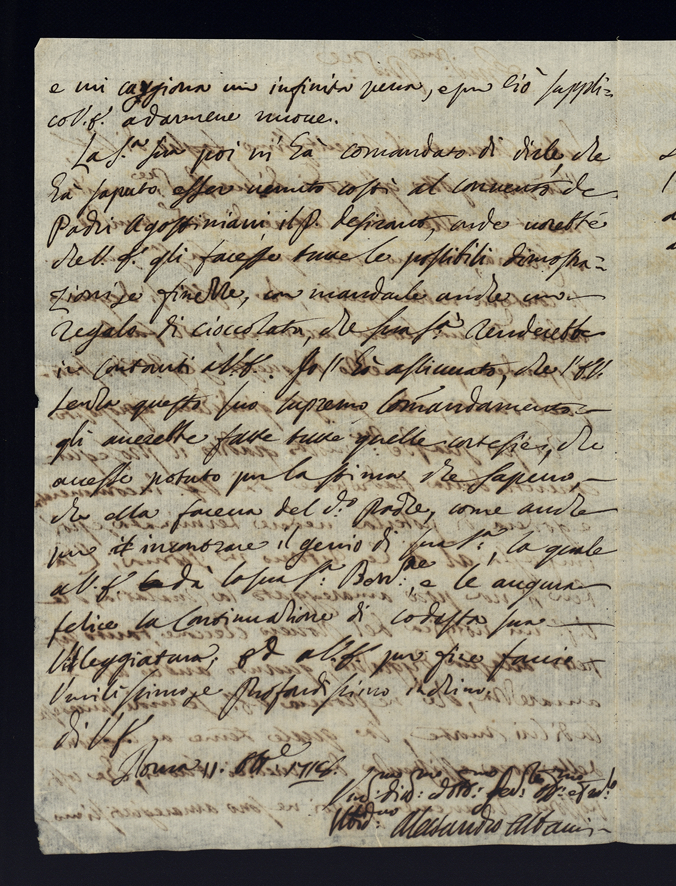 e mi caggiona un infinita pena, e per ciò suppli=
co V.E. a darmene nuove.
La S.ª Sua poi m'hà comandato di dirle, che
hà saputo esser venuto costì al convento de
Padri Agostiniani il P. desirant, onde vorebbe
che V.E. gli facesse tutte le possibili dimostra=
zioni, e finezze, con mandarle anche un
regalo di cioccolata, che Sua S.tà renderebbe
in contanti a V.E. Io l'hò assicurato, che l'E.V.
senza questo suo supremo Comandamento
gli averebbe fatte tutte quelle cortesie, che
avesse potuto per la stima che sapevo,
che ella faceva del d.º Padre, come anche
per incontrare il genio di Sua S.tà, la quale
a V.E. dà la sua S.ta Bened.ne, e le augura
felice la Continuazione di codesta sua
Villeggiatura; ed a V.E. per fine faccio
Umilissimo, e Profondissimo inchino
di V.E.
Roma 11. Ott.e
Alessandro Albani